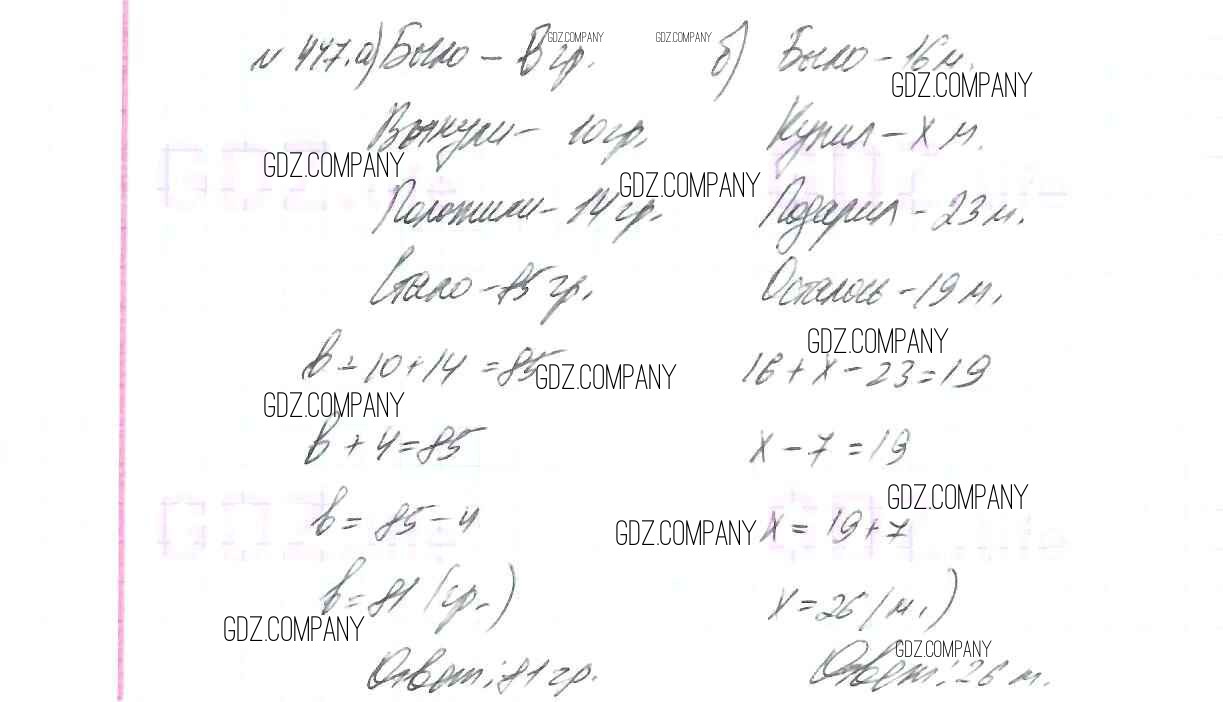 № 447. а) Было - в гр.
Вынули - 10 гр.
Положили - 14 гр.
Стало - 85 гр.
в - 10 + 14 = 85
в + 4 = 85
в = 85 - 4
в = 81 (гр.)
Ответ: 81 гр.
б) Было - 16 м.
Купил - x м.
Подарил - 23 м.
Осталось - 19 м.
16 + x - 23 = 19
x - 7 = 19
x = 19 + 7
x = 26 (м.)
Ответ: 26 м.
GDZ.COMPANY
GDZ.COMPANY
GDZ.COMPANY
GDZ.COMPANY
GDZ.COMPANY
GDZ.COMPANY
GDZ.COMPANY
GDZ.COMPANY
GDZ.COMPANY
GDZ.COMPANY
GDZ.COMPANY
GDZ.COMPANY